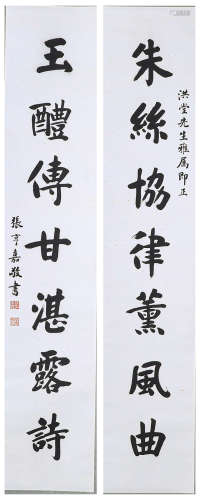 洪堂先生雅属即正
朱絲協律薰風曲
玉醴傳甘湛露詩
張亨嘉敬書